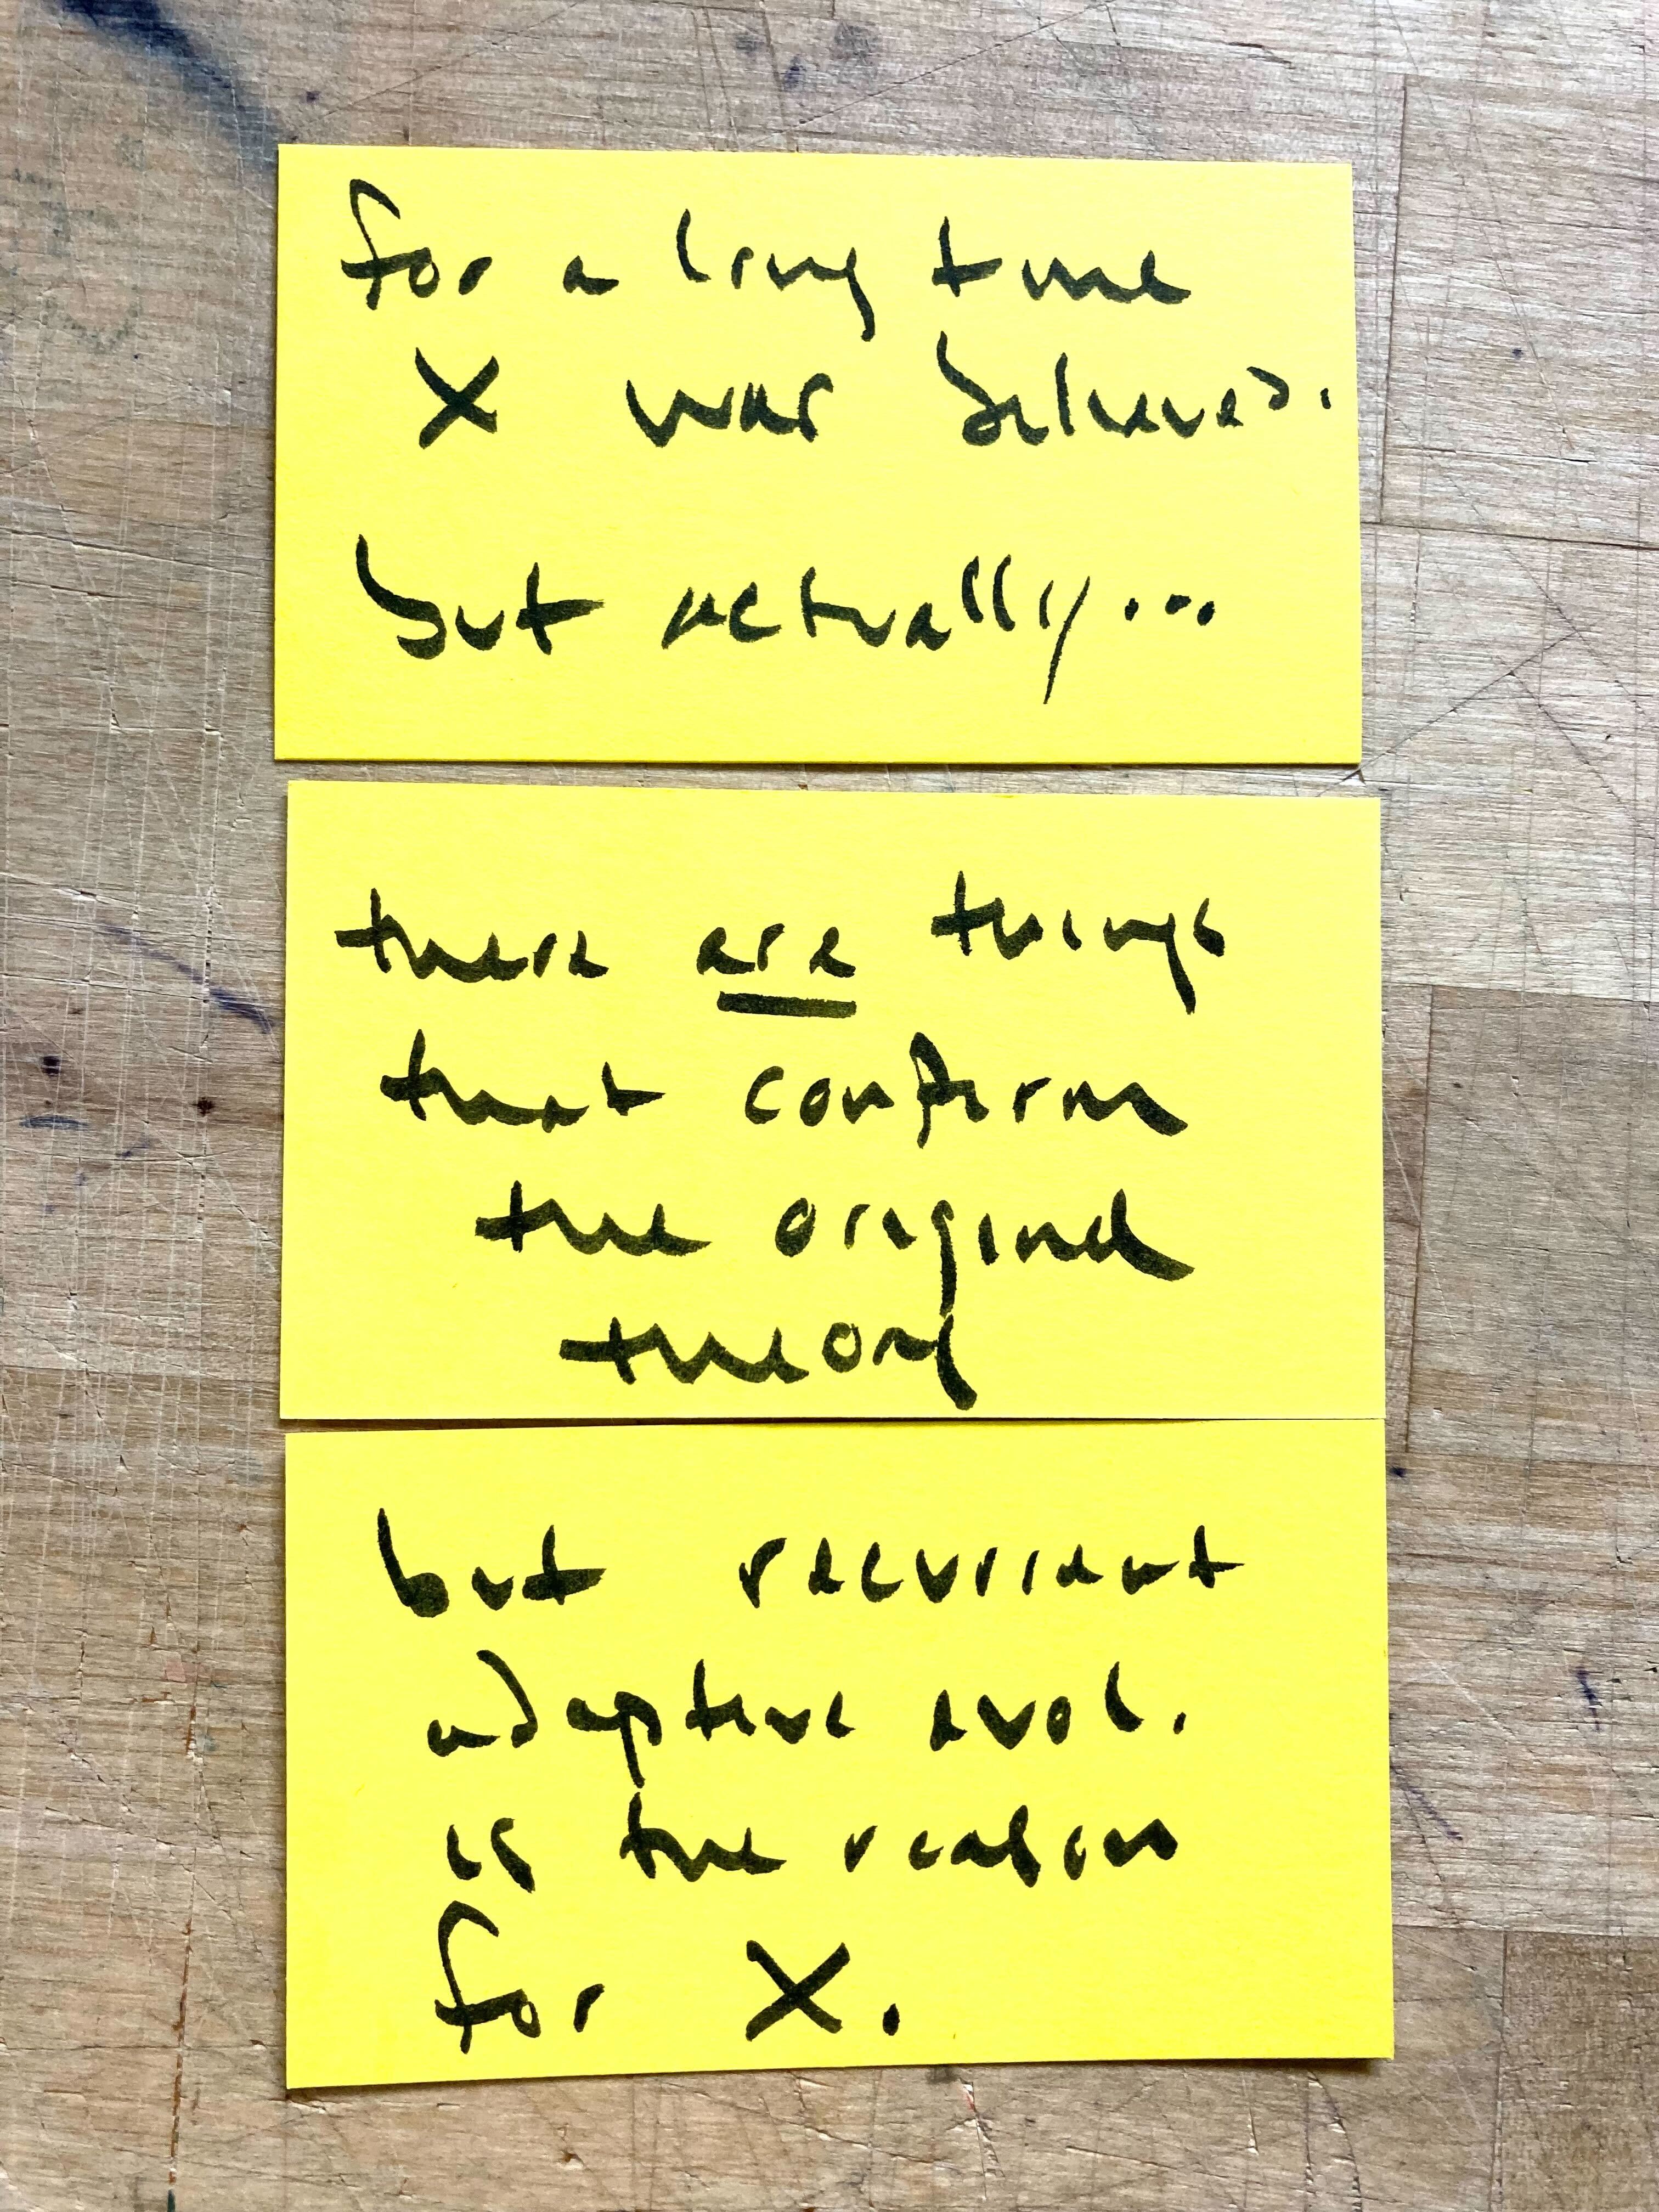 for a long time
X was believed.
but actually...
there are things
that confirm
the original
theory
but recurrent
adaptive evol.
is the reason
for X.